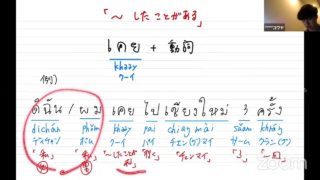 「～したことがある」
เคย + 動詞
khəəy
クーイ
例)
ดิฉัน / ผม เคย ไป เชียงใหม่ 3 ครั้ง
dichán phǒm khəəy pai chiaŋ mài sǎam khráŋ
ディチャン ポム クーイ パイ チェン(ア)マイ サーム クラン(グ)
「私」 「私」 「～したことがある」 「行く」 「チェンマイ」 「3」 「～回」
zoom